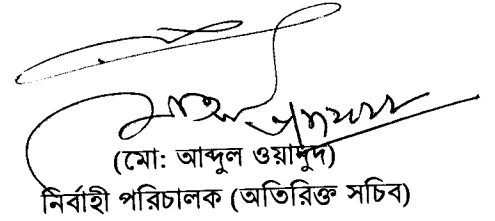 (মো: আব্দুল ওয়াদুদ)
নির্বাহী পরিচালক (অতিরিক্ত সচিব)